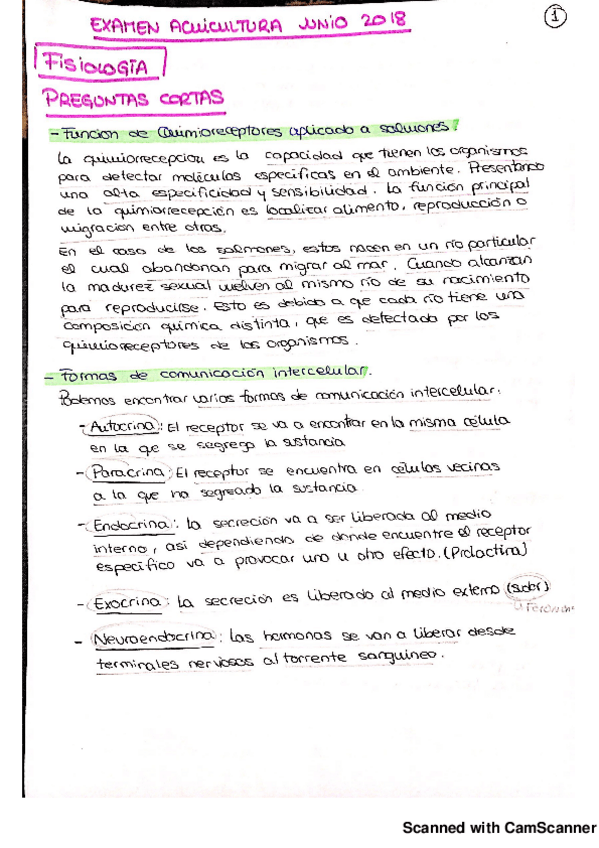 EXAMEN ACUICULTURA JUNIO 2018
1
FISIOLOGÍA
PREGUNTAS CORTAS
- Función de Quimioreceptores aplicado a salmones.
La quimiorrecepción es la capacidad que tienen los organismos
para detectar moléculas específicas en el ambiente. Presentando
una alta especificidad y sensibilidad. La función principal
de la quimiorrecepción es localizar alimento, reproducción o
migración entre otros.
En el caso de los salmones, estos nacen en un río particular
el cual abandonan para migrar al mar. Cuando alcanzan
la madurez sexual vuelven al mismo río de su nacimiento
para reproducirse. Esto es debido a que cada río tiene una
composición química distinta, que es detectado por los
quimioreceptores de los organismos.
- Formas de comunicación intercelular.
Podemos encontrar varias formas de comunicación intercelular:
- Autocrina: El receptor se va a encontrar en la misma célula
en la que se segrega la sustancia
- Paracrina: El receptor se encuentra en células vecinas
a la que ha segreado la sustancia.
- Endocrina: la secreción va a ser liberada al medio
interno, así dependiendo de donde encuentre el receptor
específico va a provocar uno u otro efecto. (Prolactina)
- Exocrina: la secreción es liberada al medio externo (sudor)
- Neuroendocrina: las hormonas se van a liberar desde
terminales nerviosos al torrente sanguíneo.
Scanned with CamScanner